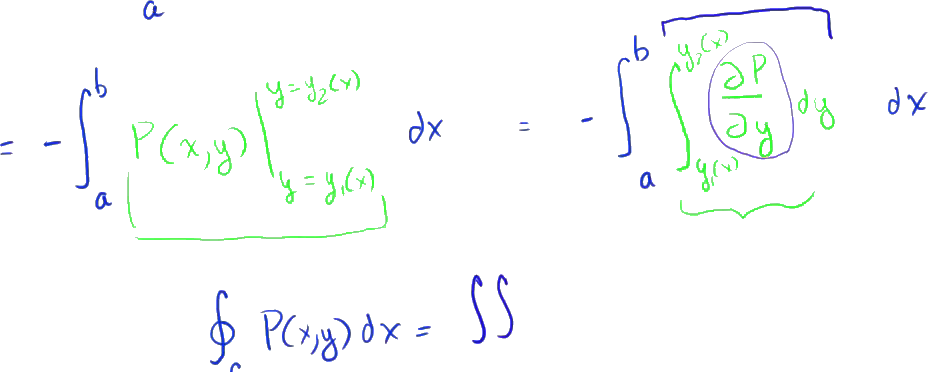 a
= - ∫_a^b P(x,y) |_{y = y₁(x)}^{y = y₂(x)} dx = - ∫_a^b ∫_{y₁(x)}^{y₂(x)} ∂P/∂y dy dx
∮_c P(x,y) dx = ∬